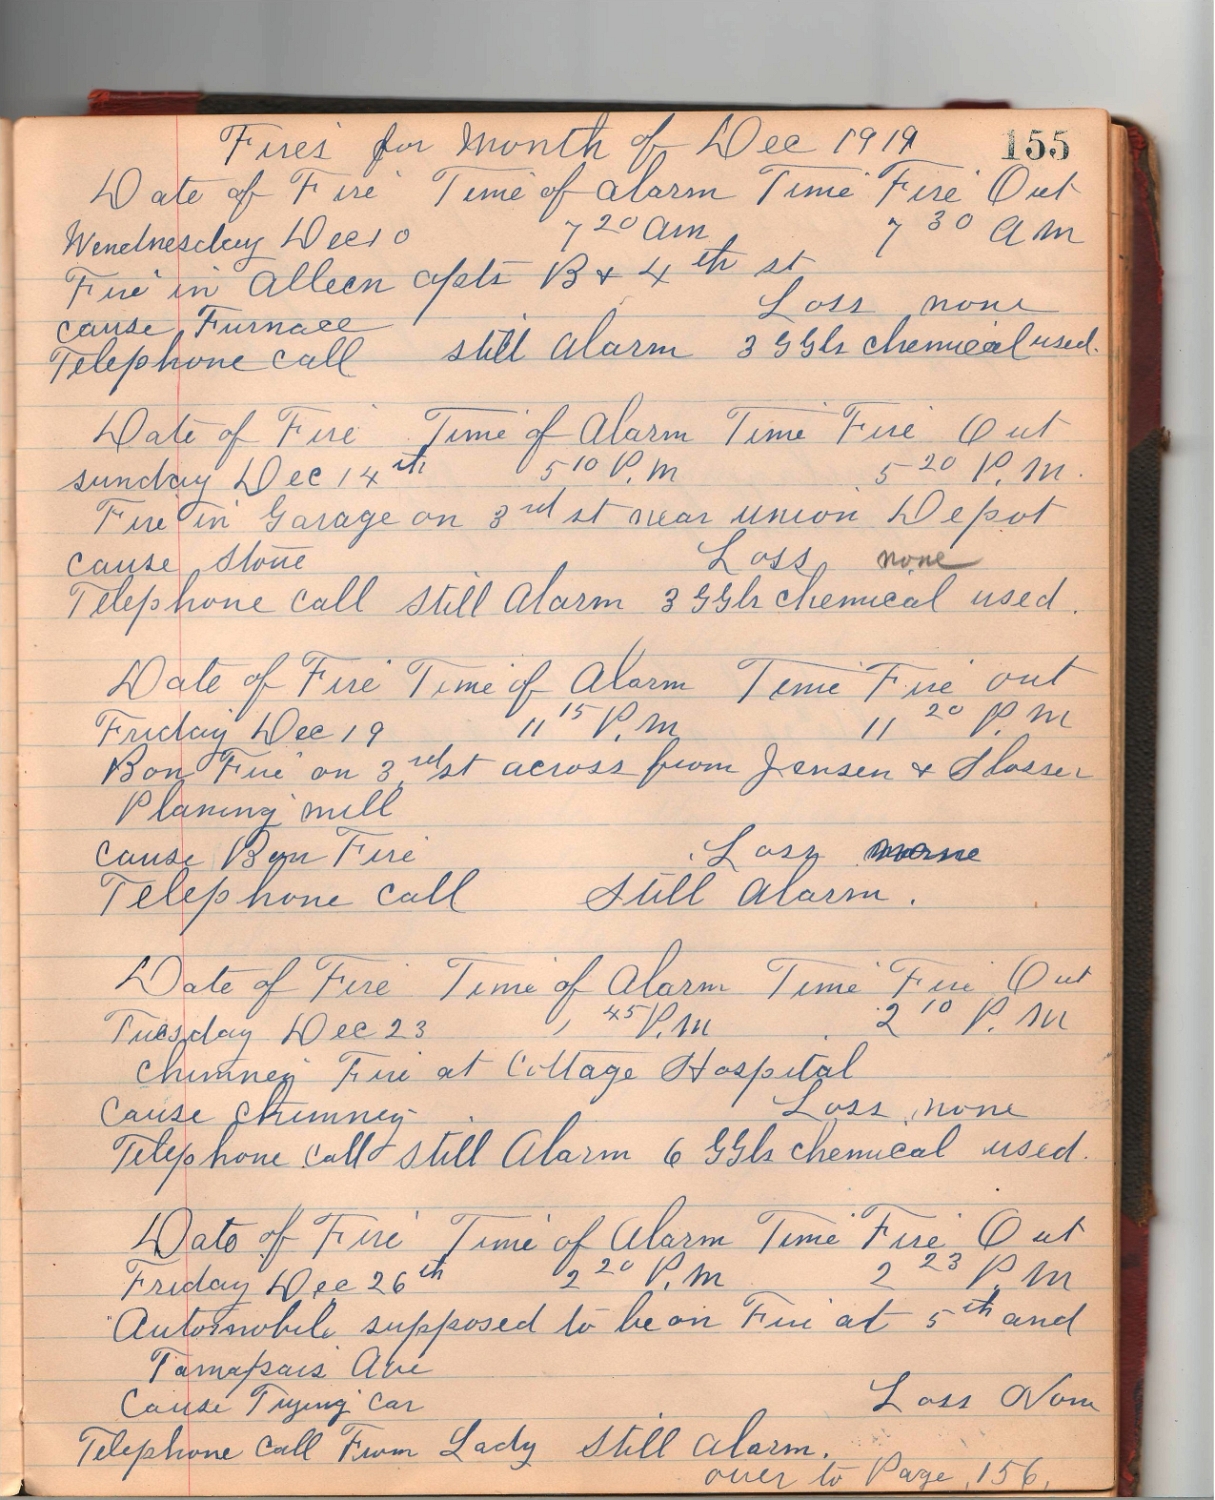 Fires for Month of Dec 1919 155
Date of Fire Time of alarm Time Fire Out
Wendnesday Dec 10 7 20 am 7 30 am
Fire in Alleen apts B + 4th st
cause Furnace Loss none
Telephone call still Alarm 3 GGls chemical used.
Date of Fire Time of Alarm Time Fire Out
sunday Dec 14th 5 10 P.M 5 20 P.M.
Fire in Garage on 3rd st near union Depot
cause stove Loss none
Telephone call still Alarm 3 GGls chemical used.
Date of Fire Time of Alarm Time Fire out
Friday Dec 19 11 15 P.M 11 20 P.M
Bon Fire on 3rd st across from Jensen + Slosser
Planing mill
cause Bon Fire Loss none
Telephone call Still Alarm.
Date of Fire Time of Alarm Time Fire Out
Tuesday Dec 23 1 45 P.M 2 10 P.M
chimney Fire at Cottage Hospital
Cause chimney Loss none
Telephone call still Alarm 6 GGls chemical used.
Date of Fire Time of Alarm Time Fire Out
Friday Dec 26th 2 20 P.M 2 23 P.M
Automobile supposed to be on Fire at 5th and
Tamapais Ave
Cause Trying car Loss None
Telephone call From Lady still alarm.
over to Page 156.